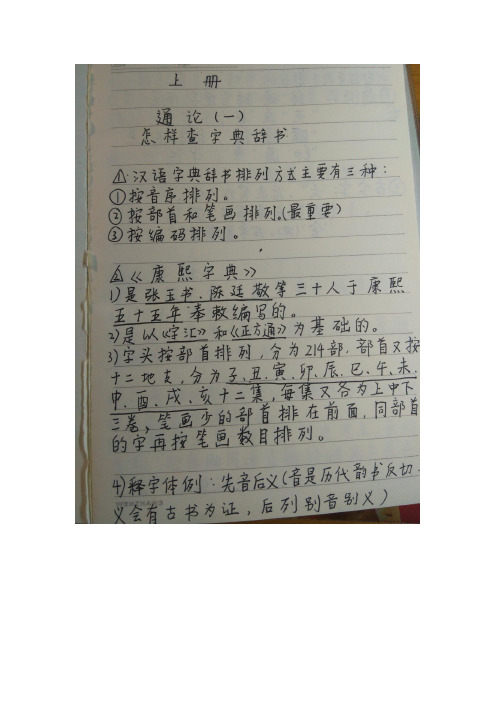 上册
通论(一)
怎样查字典辞书
△1.汉语字典辞书排列方式主要有三种:
①按音序排列。
②按部首和笔画排列。(最重要)
③按编码排列。
△2《康熙字典》
1)是张玉书、陈廷敬等三十人于康熙
五十五年奉敕编写的。
2)是以《字汇》和《正方通》为基础的。
3)字头按部首排列,分为214部,部首又按
十二地支,分为子、丑、寅、卯、辰、巳、午、未、
申、酉、戌、亥十二集,每集又各为上中下
三卷,笔画少的部首排在前面,同部首
的字再按笔画数目排列。
4)释字体例:先音后义(音是历代韵书反切,
义会有古书为证,后列别音别义)